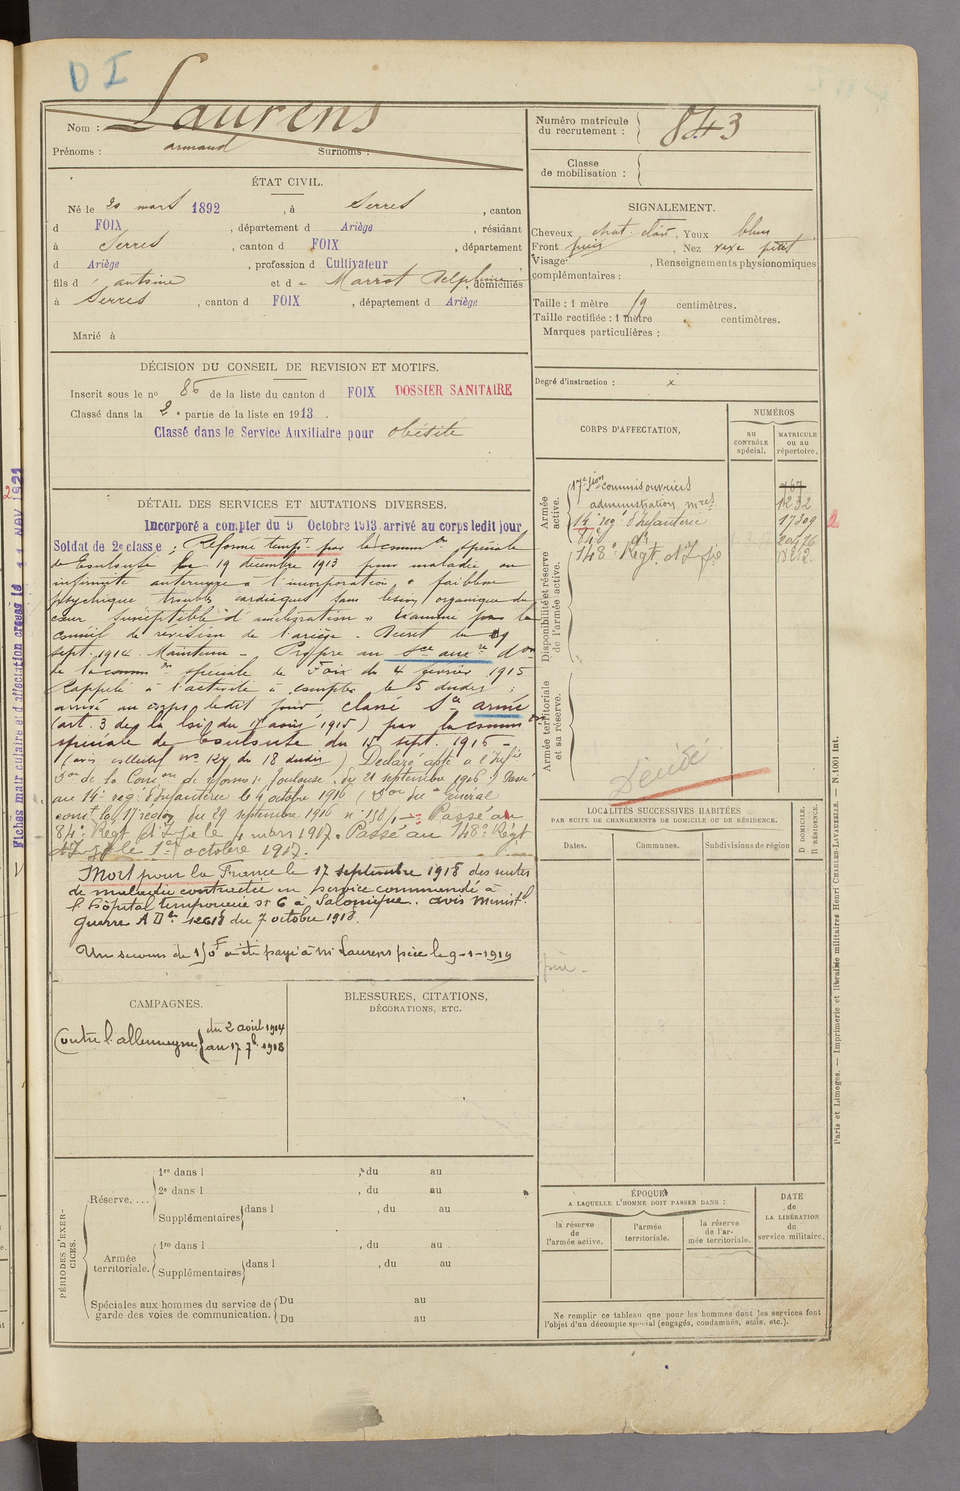 D I
Nom : Laurens
Prénoms : armand Surnoms :
Numéro matricule
du recrutement : 843
Classe
de mobilisation :
ÉTAT CIVIL.
Né le 20 mars 1892, à Serres, canton
d FOIX, département d Ariège, résidant
à Serres, canton d FOIX, département
d Ariège, profession d Cultivateur
fils d' antoine et d e Marrot Delphine, domiciliés
à Serres, canton d FOIX, département d Ariège
Marié à
SIGNALEMENT.
Cheveux chat. clair, Yeux bleus
Front , Nez petit
Visage , Renseignements physionomiques
complémentaires :
Taille : 1 mètre 19 centimètres.
Taille rectifiée : 1 mètre centimètres.
Marques particulières :
Degré d'instruction : x
DÉCISION DU CONSEIL DE REVISION ET MOTIFS.
Inscrit sous le no 86 de la liste du canton d FOIX DOSSIER SANITAIRE
Classé dans la 2e partie de la liste en 1913.
Classé dans le Service Auxiliaire pour obésité
DÉTAIL DES SERVICES ET MUTATIONS DIVERSES.
Incorporé a compter du 9 Octobre 1913 arrivé au corps ledit jour
Soldat de 2e classe ; Réformé tempre par la common spéciale
de 19 décembre 1913 pour maladie ou
infirmité antérieure à l'incorporation, " faiblesse
psychique troubles cardiaques sans lésion organique du
cœur susceptible d'amélioration " Examiné par le
conseil de révision de l'ariège - Duret du 9
sept. 1914. Maintenu - Propre au Sce auxre Don
de la common spéciale de Foix du 4 février 1915
Rappelé à l'activité à compter le 5 dudit ;
arrivé au corps ledit jour. Classé Sce armé
(art. 3 de la loi du 17 août 1915) par la comm on
spéciale de du 15 sept. 1915
(avis collectif no 127 du 18 dudit) Déclaré apte à l'Infie
Don de la Comon de Toulouse, du 21 septembre 1916. Passé
au 14e reg. d'Infanterie le 4 octobre 1916 (Don du Général
comt la 17e région du 29 septembre 1916 no ) Passé au
84e Régt d'Infie le 4 mars 1917. Passé au 148e Régt
d'Infie le 1er octobre 1917.
Mort pour la France le 17 septembre 1918 des suites
de maladie contractée en service commandé à
l'hôpital temporaire no 6 à Salonique. avis minist.l
Guerre A Dn 12618 du 7 octobre 1918
Un secours de 150F a été payé à Mr Laurens père le 9-1-1919
CORPS D'AFFECTATION,
NUMÉROS
au
CONTRÔLE
spécial.
MATRICULE
ou au
répertoire.
Armée
active.
Disponibilité et réserve
de l'armée active.
Armée territoriale
et sa réserve.
17e son commis ouvriers
administration mres 1232
14e reg d'Infanterie 17309 2
84e
148e Régt d'Infie
Décédé
LOCALITÉS SUCCESSIVES HABITÉES
PAR SUITE DE CHANGEMENTS DE DOMICILE OU DE RÉSIDENCE.
Dates. Communes. Subdivisions de région
D. DOMICILE.
R. RÉSIDENCE.
CAMPAGNES.
Contre l'allemagne du 2 août 1914
au 17 7bre 1918
BLESSURES, CITATIONS,
DÉCORATIONS, ETC.
PÉRIODES D'EXERCICES.
Réserve....
1re dans l , du au
2e dans l , du au
Supplémentaires dans l , du au
Armée
territoriale.
1re dans l , du au
Supplémentaires dans l , du au
Spéciales aux hommes du service de
garde des voies de communication.
Du au
Du au
ÉPOQUE
A LAQUELLE L'HOMME DOIT PASSER DANS :
la réserve
de
l'armée active.
l'armée
territoriale.
la réserve
de l'ar-
mée territoriale.
DATE
de
LA LIBÉRATION
du
service militaire.
Ne remplir ce tableau que pour les hommes dont les services font
l'objet d'un décompte spécial (engagés, condamnés, omis, etc.).
Paris et Limoges. — Imprimerie et librairie militaires Henri CHARLES-LAVAUZELLE. — N. 1001 int.